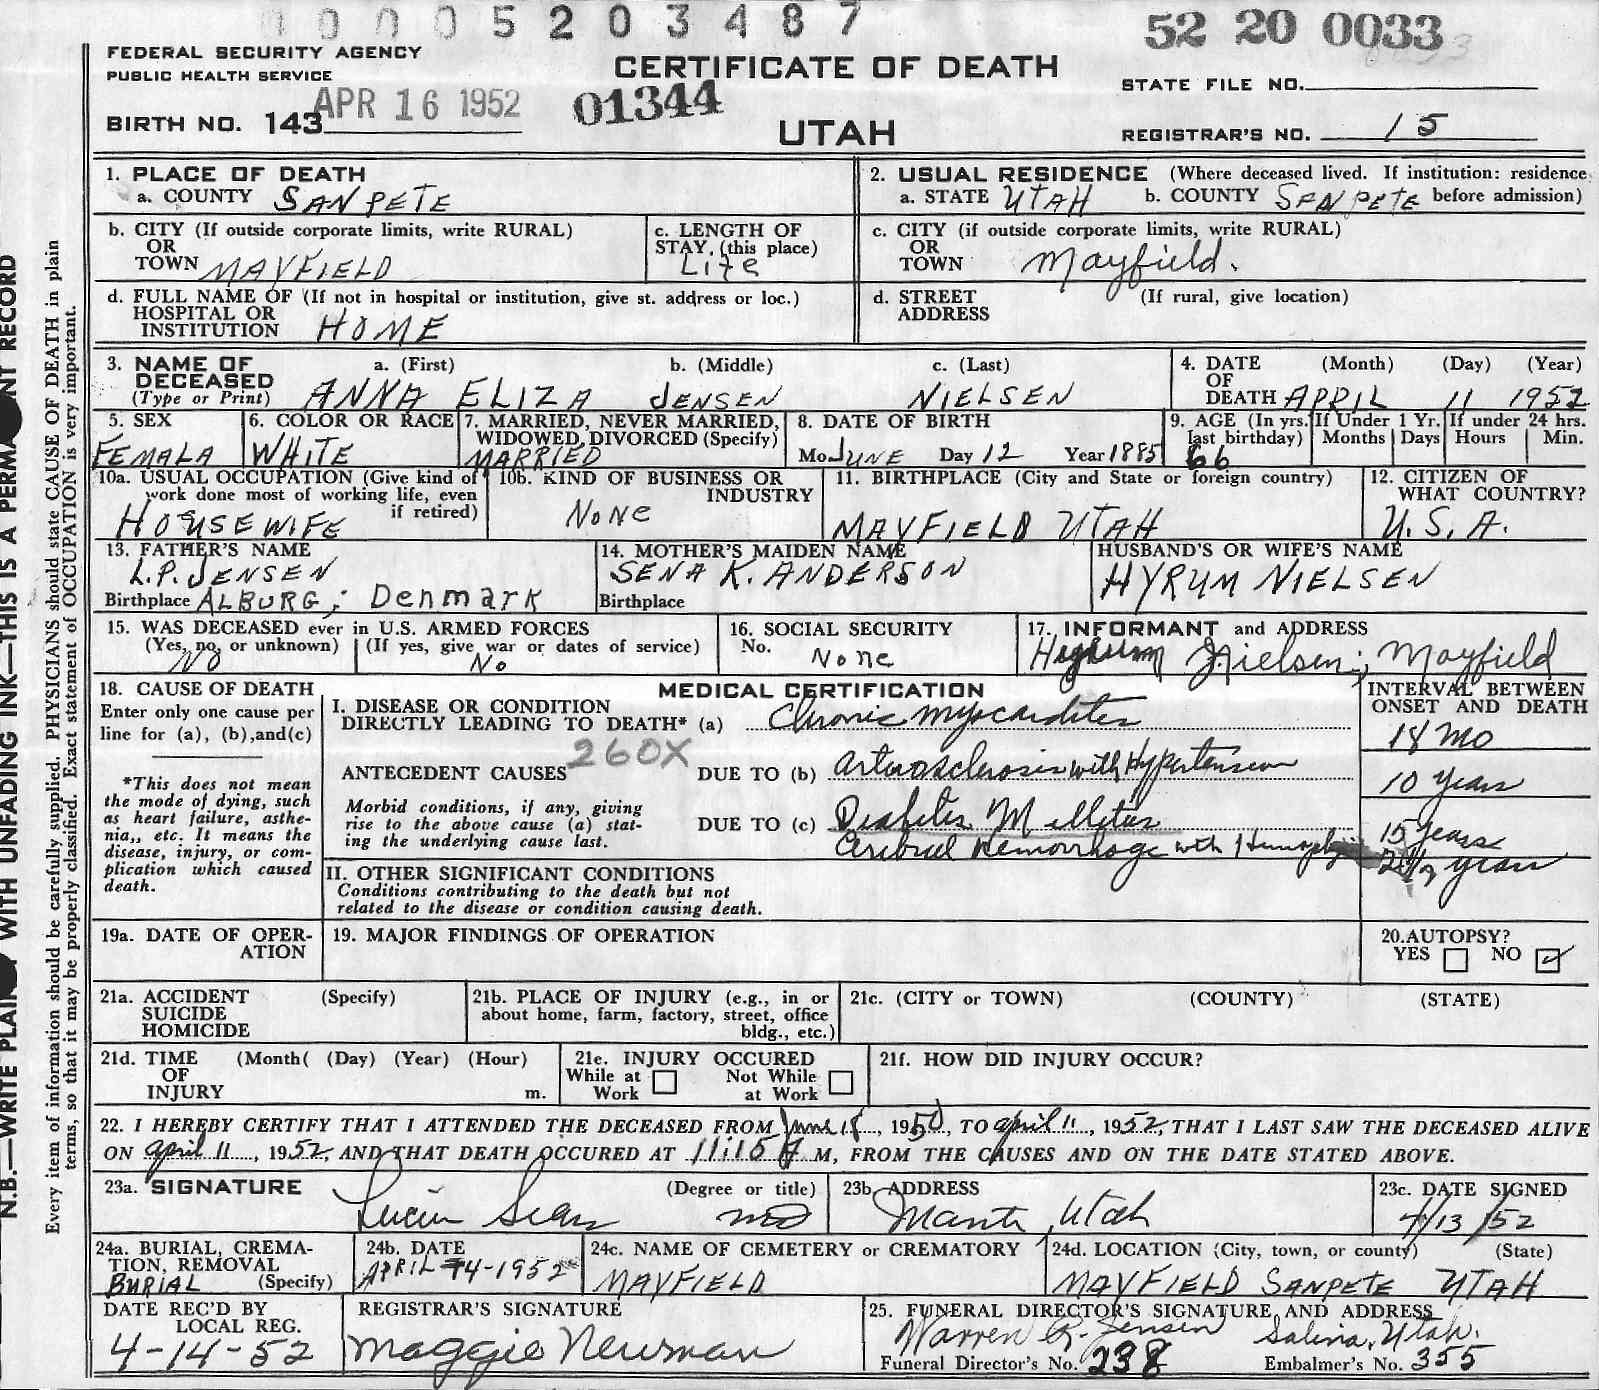 00005203487
52 20 0033
FEDERAL SECURITY AGENCY
PUBLIC HEALTH SERVICE
CERTIFICATE OF DEATH
STATE FILE NO.
APR 16 1952
01344
BIRTH NO. 143
UTAH
REGISTRAR'S NO. 15
1. PLACE OF DEATH
a. COUNTY SANPETE
2. USUAL RESIDENCE (Where deceased lived. If institution: residence
a. STATE UTAH b. COUNTY SANPETE before admission)
b. CITY (If outside corporate limits, write RURAL)
OR
TOWN MAYFIELD
c. LENGTH OF
STAY, (this place)
Life
c. CITY (if outside corporate limits, write RURAL)
OR
TOWN Mayfield.
d. FULL NAME OF (If not in hospital or institution, give st. address or loc.)
HOSPITAL OR
INSTITUTION HOME
d. STREET (If rural, give location)
ADDRESS
3. NAME OF a. (First) b. (Middle) c. (Last)
DECEASED
(Type or Print) ANNA ELIZA JENSEN NIELSEN
4. DATE (Month) (Day) (Year)
OF
DEATH APRIL 11 1952
5. SEX
FEMALA
6. COLOR OR RACE
WHITE
7. MARRIED, NEVER MARRIED,
WIDOWED, DIVORCED (Specify)
MARRIED
8. DATE OF BIRTH
Mo JUNE Day 12 Year 1885
9. AGE (In yrs.
last birthday)
66
If Under 1 Yr.
Months Days
If under 24 hrs.
Hours Min.
10a. USUAL OCCUPATION (Give kind of
work done most of working life, even
if retired)
HOUSEWIFE
10b. KIND OF BUSINESS OR
INDUSTRY
NONE
11. BIRTHPLACE (City and State or foreign country)
MAYFIELD UTAH
12. CITIZEN OF
WHAT COUNTRY?
U.S.A.
13. FATHER'S NAME
L.P. JENSEN
Birthplace ALBURG; Denmark
14. MOTHER'S MAIDEN NAME
SENA K. ANDERSON
Birthplace
HUSBAND'S OR WIFE'S NAME
HYRUM NIELSEN
15. WAS DECEASED ever in U.S. ARMED FORCES
(Yes, no, or unknown) (If yes, give war or dates of service)
No No
16. SOCIAL SECURITY
No. None
17. INFORMANT and ADDRESS
Nielsen; Mayfield
18. CAUSE OF DEATH
Enter only one cause per
line for (a), (b),and(c)
*This does not mean
the mode of dying, such
as heart failure, asthe-
nia,, etc. It means the
disease, injury, or com-
plication which caused
death.
MEDICAL CERTIFICATION
I. DISEASE OR CONDITION
DIRECTLY LEADING TO DEATH* (a) Chronic Myocarditis
260X
ANTECEDENT CAUSES DUE TO (b) Arteriosclerosis with Hypertension
Morbid conditions, if any, giving
rise to the above cause (a) stat-
ing the underlying cause last.
DUE TO (c) Diabetis Mellitus
Cerebral Hemorrhage with
II. OTHER SIGNIFICANT CONDITIONS
Conditions contributing to the death but not
related to the disease or condition causing death.
INTERVAL BETWEEN
ONSET AND DEATH
18 Mo
10 Years
15 years
2 1/2 years
19a. DATE OF OPER-
ATION
19. MAJOR FINDINGS OF OPERATION
20.AUTOPSY?
YES NO
21a. ACCIDENT (Specify)
SUICIDE
HOMICIDE
21b. PLACE OF INJURY (e.g., in or
about home, farm, factory, street, office
bldg., etc.)
21c. (CITY or TOWN) (COUNTY) (STATE)
21d. TIME (Month( (Day) (Year) (Hour)
OF
INJURY m.
21e. INJURY OCCURED
While at Not While
Work at Work
21f. HOW DID INJURY OCCUR?
22. I HEREBY CERTIFY THAT I ATTENDED THE DECEASED FROM June 18, 1950, TO April 11, 1952, THAT I LAST SAW THE DECEASED ALIVE
ON April 11, 1952, AND THAT DEATH OCCURED AT 11:15 A M, FROM THE CAUSES AND ON THE DATE STATED ABOVE.
23a. SIGNATURE (Degree or title)
Lucien Sears MD
23b. ADDRESS
Manti, Utah
23c. DATE SIGNED
4/13/52
24a. BURIAL, CREMA-
TION, REMOVAL
BURIAL (Specify)
24b. DATE
APRIL 14-1952
24c. NAME OF CEMETERY or CREMATORY
MAYFIELD
24d. LOCATION (City, town, or county) (State)
MAYFIELD SANPETE UTAH
DATE REC'D BY
LOCAL REG.
4-14-52
REGISTRAR'S SIGNATURE
Maggie Newman
25. FUNERAL DIRECTOR'S SIGNATURE, AND ADDRESS
Warren R. Jensen Salina, Utah.
Funeral Director's No. 238 Embalmer's No. 355
Every item of information should be carefully supplied. PHYSICIANS should state CAUSE OF DEATH in plain
terms, so that it may be properly classified. Exact statement of OCCUPATION is very important.
N.B.—WRITE WITH UNFADING INK—THIS IS A RECORD